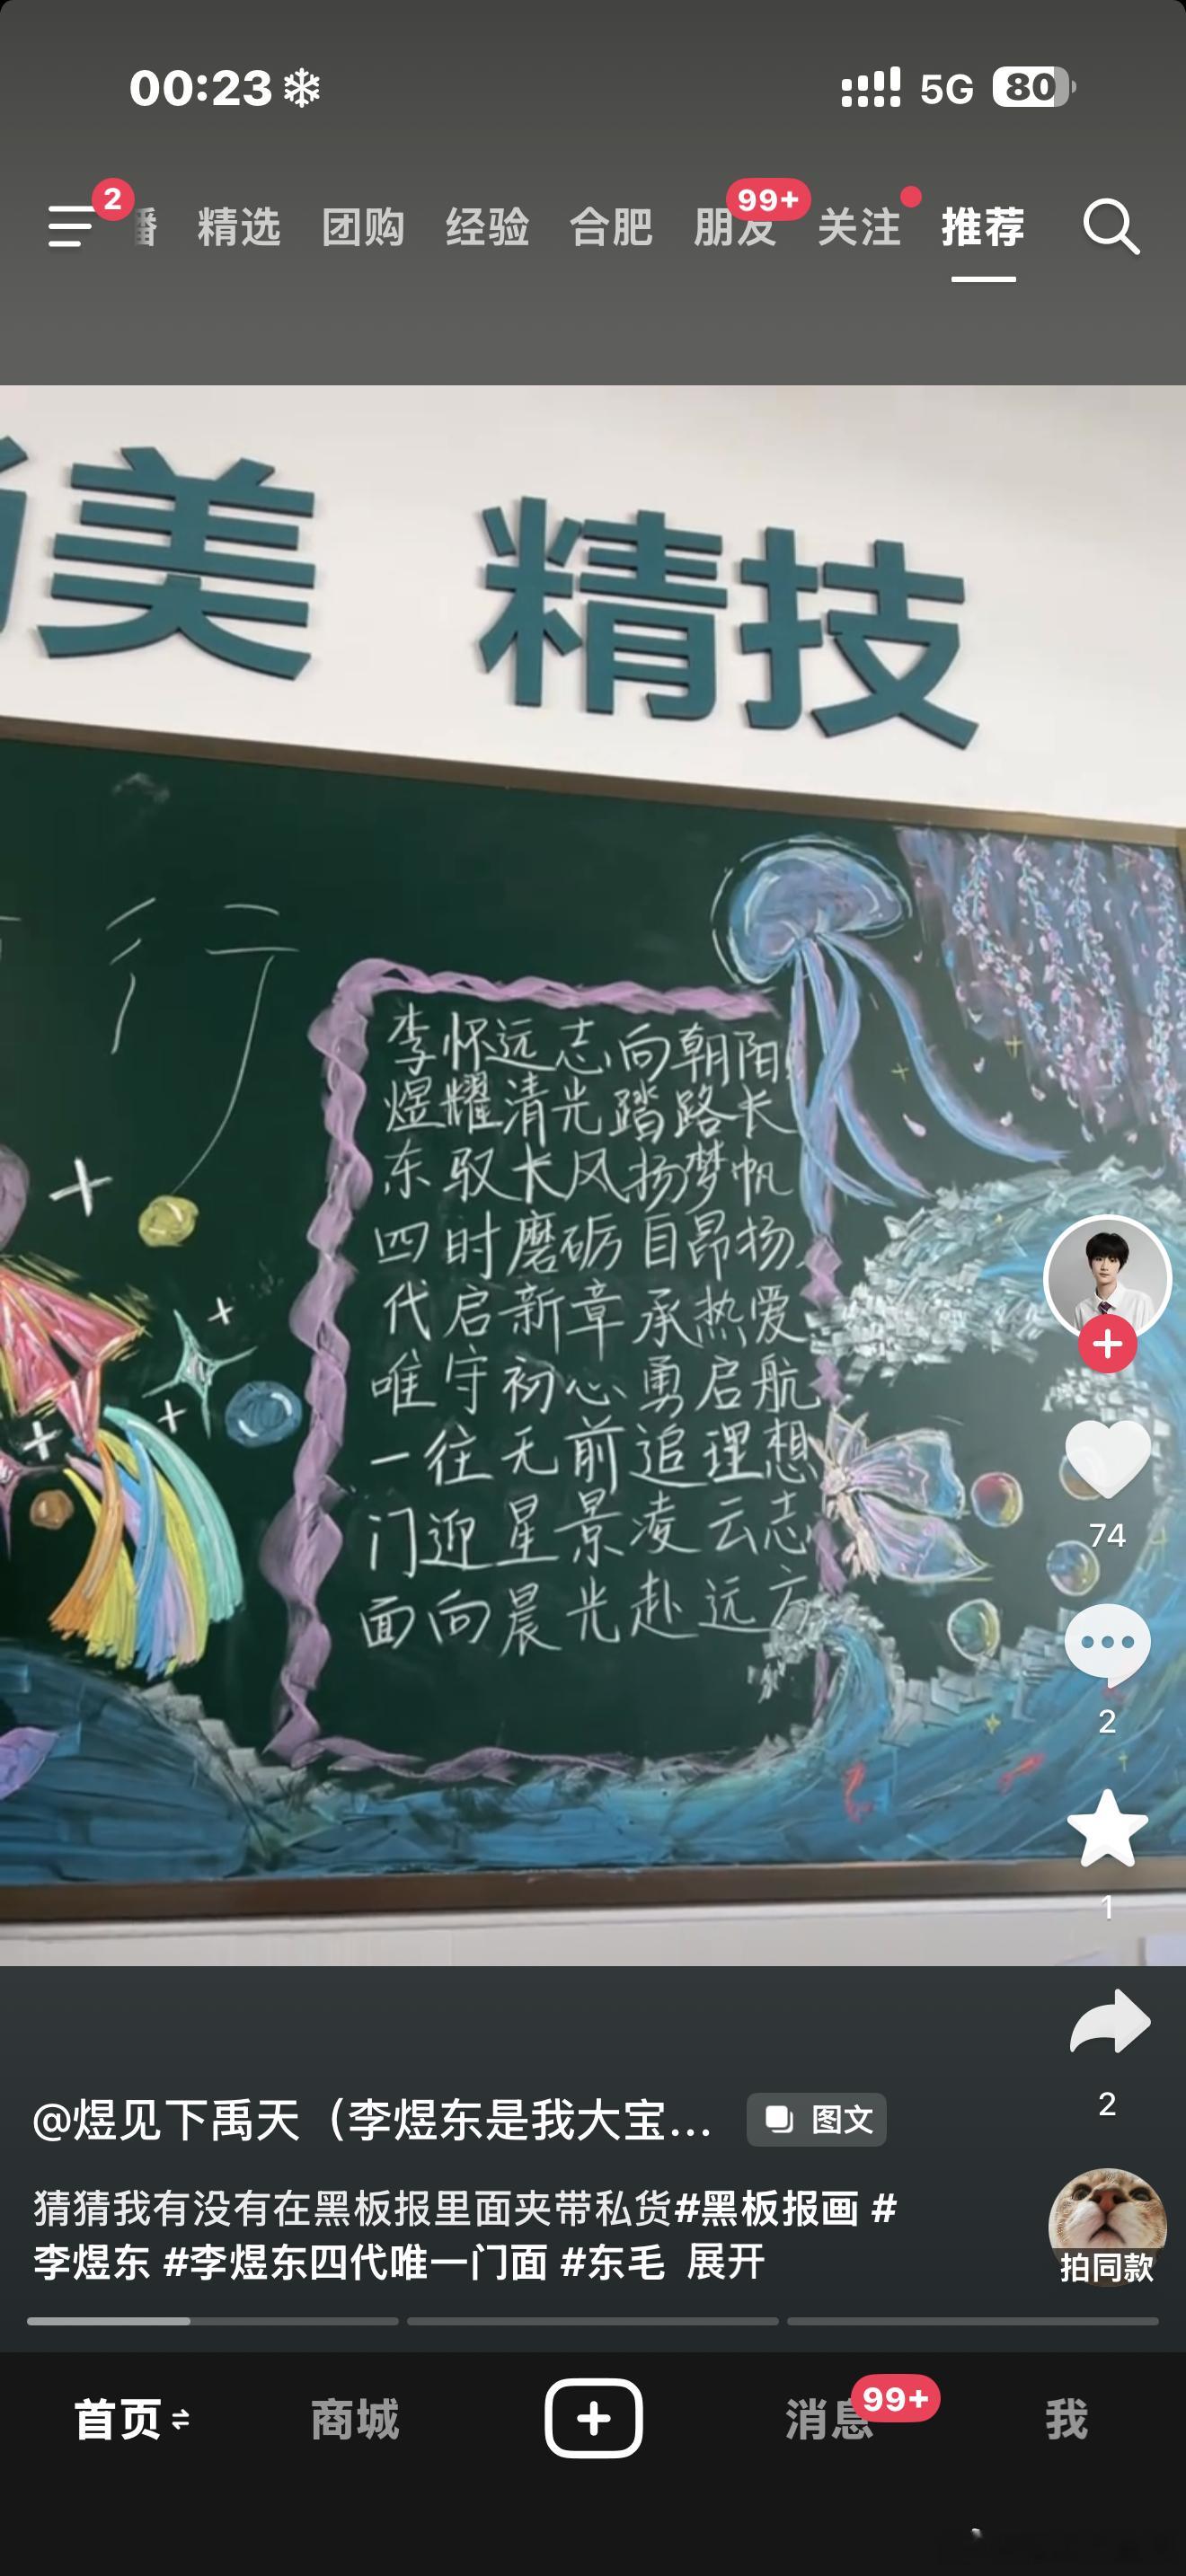 00:23 5G 80
2 精选 团购 经验 合肥 朋友 99+ 关注 推荐
美 精技
行
李怀远志向朝阳
煜耀清光踏路长
东驭长风扬梦帆
四时磨砺自昂扬
代启新章承热爱
唯守初心勇启航
一往无前追理想
门迎星景凌云志
面向晨光赴远方
74
2
1
2
@煜见下禹天（李煜东是我大宝... 图文
猜猜我有没有在黑板报里面夹带私货#黑板报画 #
李煜东 #李煜东四代唯一门面 #东毛 展开
拍同款
首页 商城 消息 99+ 我